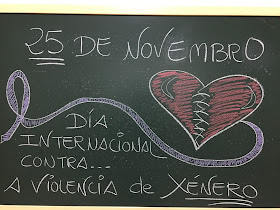 25 DE NOVEMBRO
DÍA
INTERNACIONAL
CONTRA...
A VIOLENCIA de XÉNERO